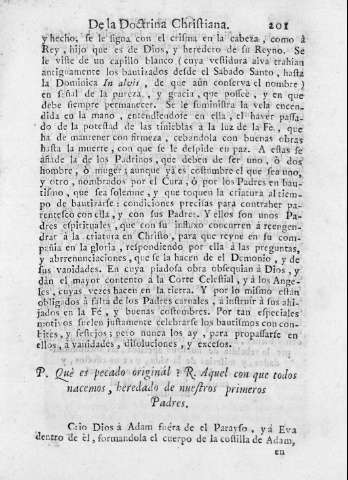 De la Doctrina Christiana. 201
y hecho, se le signa con el crisma en la cabeza, como à
Rey, hijo que es de Dios, y heredero de su Reyno. Se
le viste de un capillo blanco (cuya vestidura alva trahian
antiguamente los bautizados desde el Sabado Santo, hasta
la Dominica In alvis, de que aùn conserva el nombre)
en señal de la pureza, y gracia, que posseè, y en que
debe siempre permanecer. Se le suministra la vela encen-
dida en la mano, entendiendose en ella, el haver passa-
do de la potestad de las tinieblas à la luz de la Fè, que
ha de mantener con firmeza, cebandola con buenas obras
hasta la muerte, con que se le despide en paz. A estas se
añade la de los Padrinos, que deben de ser uno, ò dos
hombre, ò muger; aunque yá es costumbre el que sea uno,
y otro, nombrados por el Cura, ò por los Padres en bau-
tismo, que sea solemne, y que toquen la criatura al tiem-
po de bautizarse: condiciones precisas para contraher pa-
rentesco con ella, y con sus Padres. Y ellos son unos Pa-
dres espirituales, que con su influxo concurren à reengen-
drar à la criatura en Christo, para que reyne en su com-
pañia en la gloria, respondiendo por ella à las preguntas,
y abrrenunciaciones, que se la hacen de el Demonio, y de
sus vanidades. En cuya piadosa obra obsequian à Dios, y
dàn el mayor contento à la Corte Celestial, y à los Ange-
les, cuyas veces hacen en la tierra. Y por lo mismo estàn
obligados à falta de los Padres carnales, à instruir à sus ahi-
jados en la Fè, y buenas costumbres. Por tan especiales
motivos suelen justamente celebrarse los bautismos con con-
bites, y festejos; pero nunca los ay, para propassarse en
ellos, à vanidades, disoluciones, y excesos.
P. Què es pecado originàl? R. Aquel con que todos
nacemos, heredado de nuestros primeros
Padres.
Criò Dios à Adam fuera de el Parayso, y à Eva
dentro de èl, formandola el cuerpo de la costilla de Adam,
en